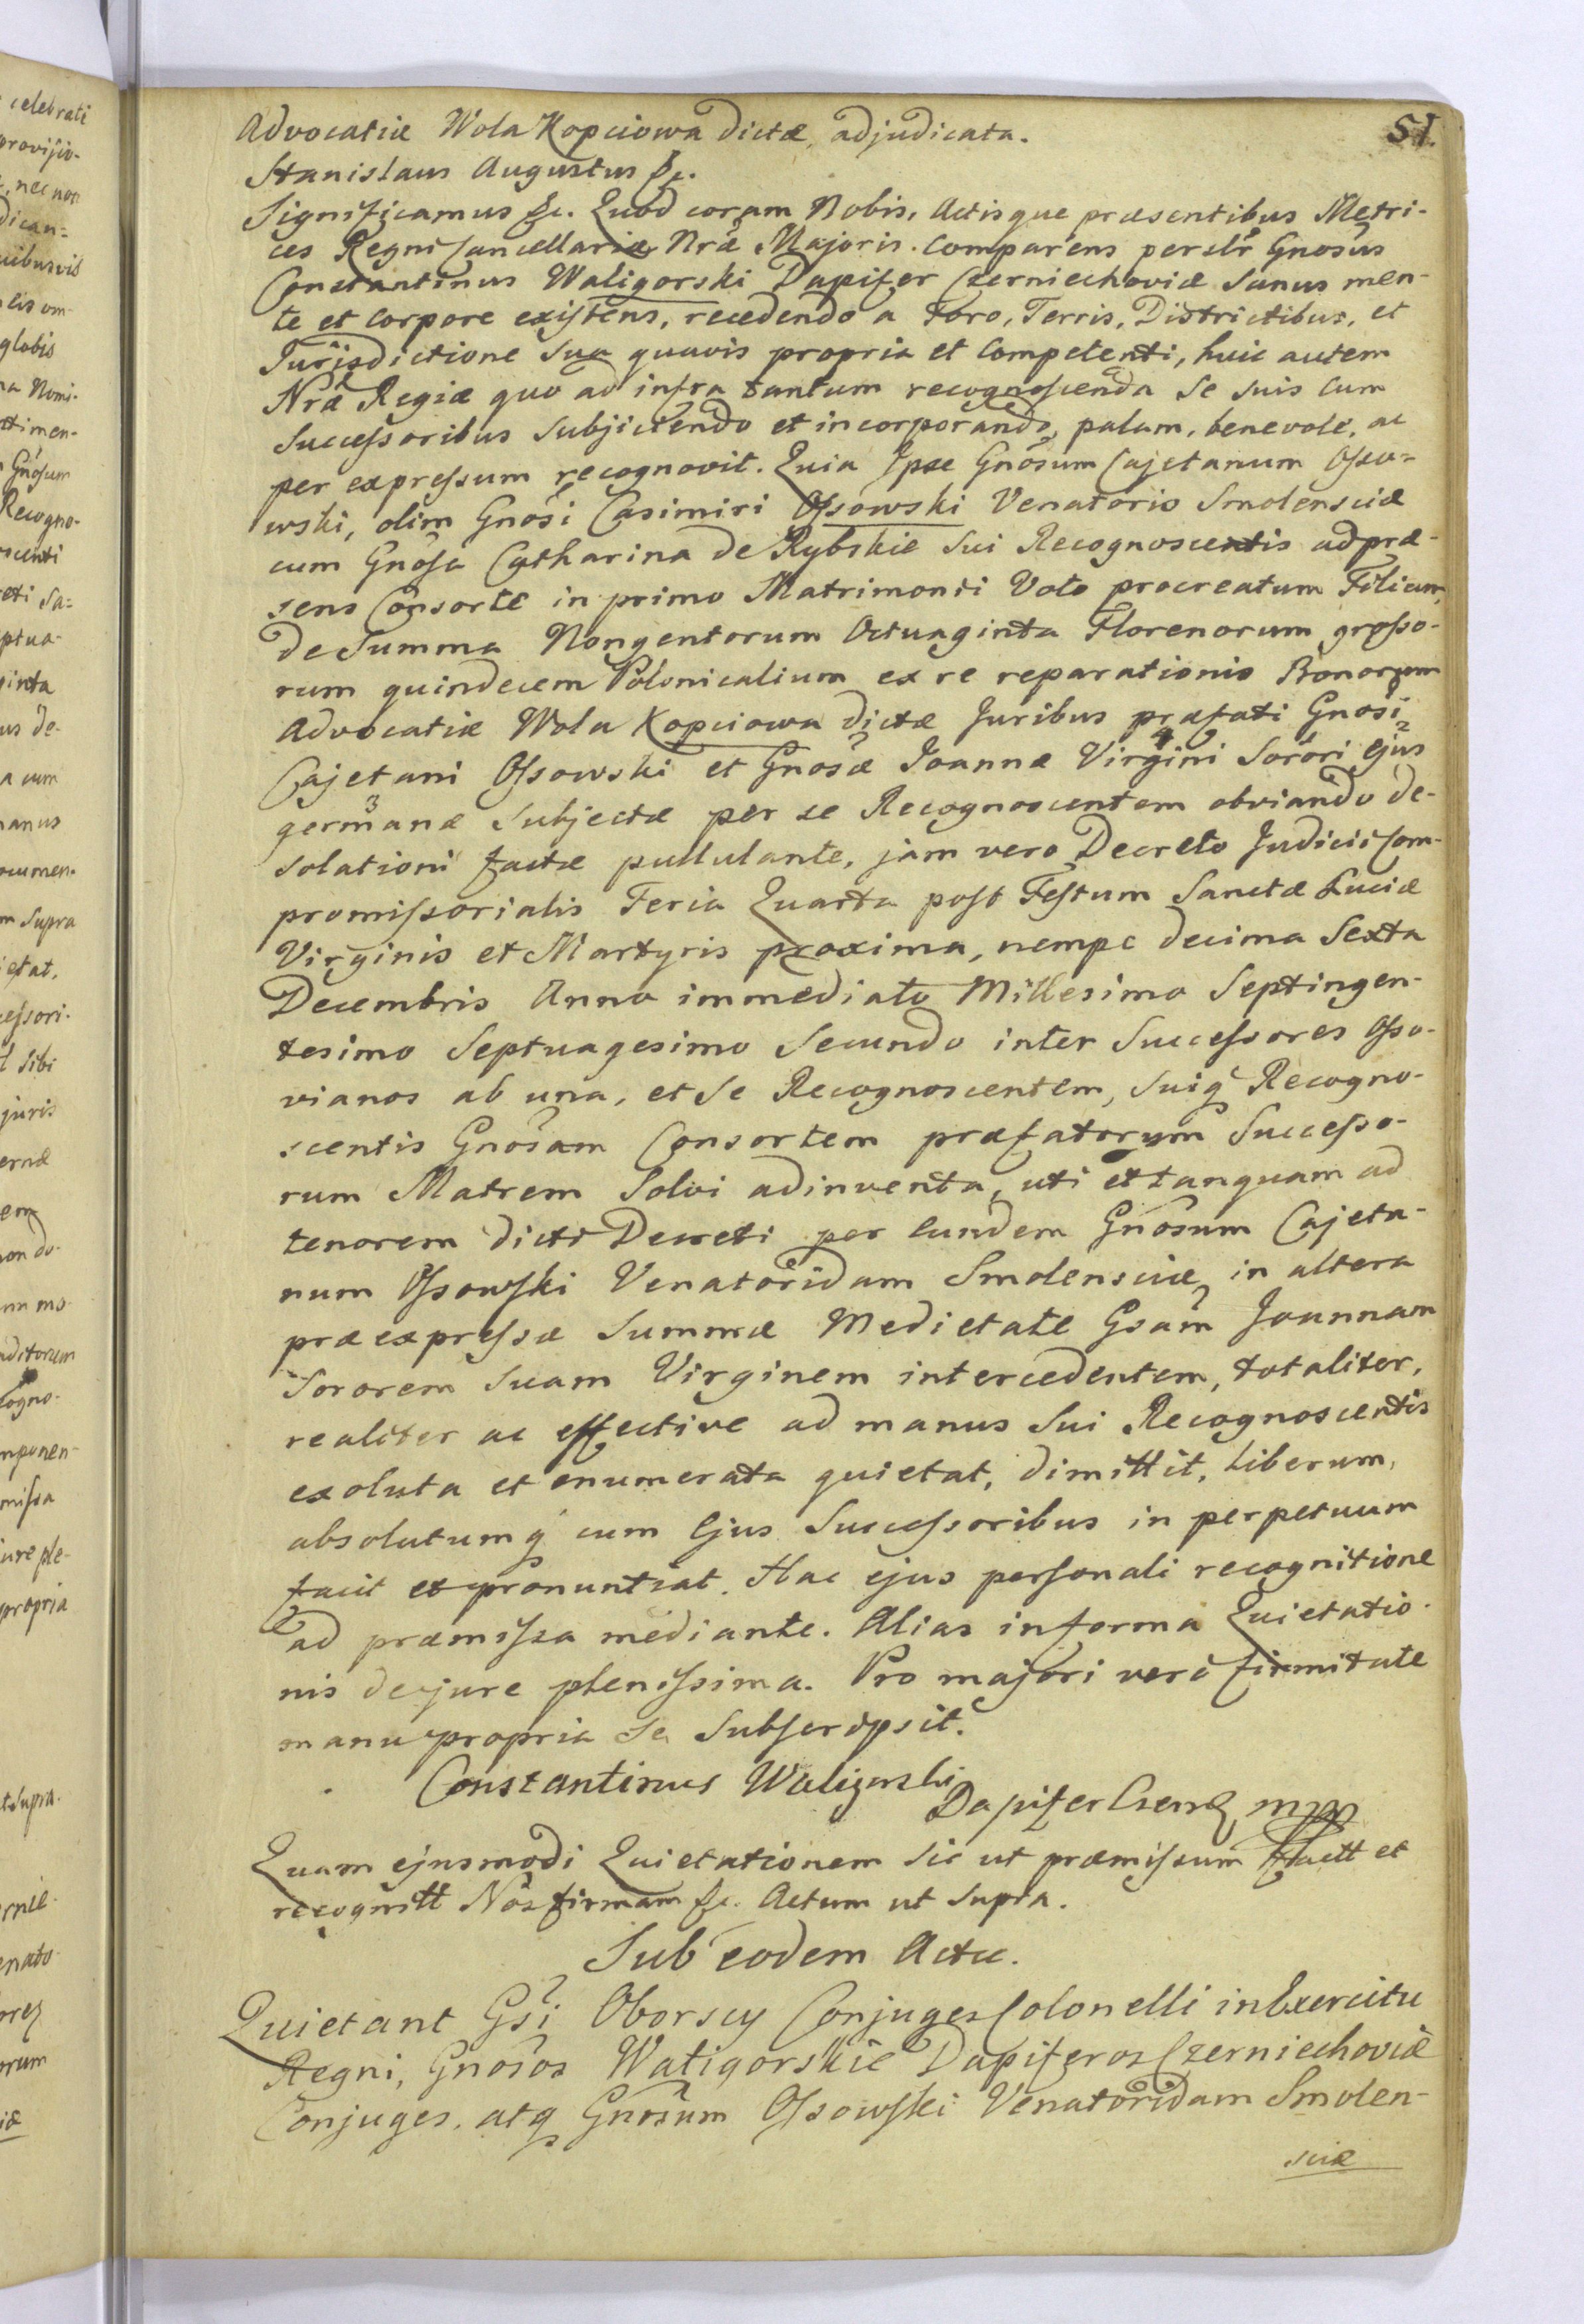 51.
Advocatiæ Wola Kopciowa dictæ, adjudicata.
Stanislaus Augustus &c.
Significamus &c. Quod coram Nobis, Actisque præsentibus Metri-
ces Regni Cancellariæ Nræ Majoris. Comparens perslr Gnosus
Constantinus Waligorski Dapifer Czerniechoviæ Sanus men-
te et corpore existens, recedendo a Foro, Terris, Districtibus, et
Jurisdictione sua quavis propria et Competenti, huic autem
Nræ Regiæ quo ad infra tantum recognoscenda se suis cum
Successoribus subjiciendo et incorporando, palam, benevole, ac
per expressum recognovit. Quia Ipse Gnosum Cajetanum Osso-
wski, olim Gnosi Casimiri Ossowski Venatoris Smolensciæ
cum Gnosa Catharina de Rybskie sui Recognoscentis ad præ-
sens Consorte in primo Matrimonii Voto procreatum Filium,
de Summa Nongentorum Octuaginta Florenorum grosso-
rum quindecem Polonicalium ex re reparationis Bonorum
Advocatiæ Wola Kopciowa dictæ Juribus præfati Gnosi
Cajetani Ossowski et Gnosæ Joannæ Virgini Sorori Ejus
germanæ Subjectæ per se Recognoscentem obviando de-
solationi factæ pullulante, jam vero Decreto Judicii Com-
promissorialis Feria Quarta post Festum Sanctæ Luciæ
Virginis et Martyris proxima, nempe decima Sexta
Decembris Anno immediato Millesimo Septingen-
tesimo Septuagesimo Secundo inter Successores Osso-
vianos ab una, et se Recognoscentem, suiq Recogno-
scentis Gnosam Consortem præfatorum Successo-
rum Matrem solvi adinventa, uti et tanquam ad
tenorem dicti Decreti per eundem Gnosum Cajeta-
num Ossowski Venatoridam Smolensciæ, in altera
præexpressæ Summæ Medietate Gsam Joannam
Sororem suam Virginem intercedentem, totaliter,
realiter ac effective ad manus sui Recognoscentis
exoluta et enumerata quietat, dimittit, Liberum,
absolutumq cum Ejus Successoribus in perpetuum
facit et pronuntiat. Hac ejus personali recognitione
ad præmissa mediante. Alias in forma Quietatio-
nis de jure plenissima. Pro majori vero firmitate
manu propria se Subscripsit.
Constantinus Waligorski
Dapifer Czern mpp
Quam ejusmodi Quietationem sic ut præmissum factt et
recognitt Nos firmam &c. Actum ut supra.
Sub eodem Actu.
Quietant Gsi Oborscy Conjuges Colonelli in Exercitu
Regni, Gnosos Waligorskie Dapiferos Czerniechoviæ
Conjuges, atq Gnosum Ossowski Venatoridam Smolen-
sciæ